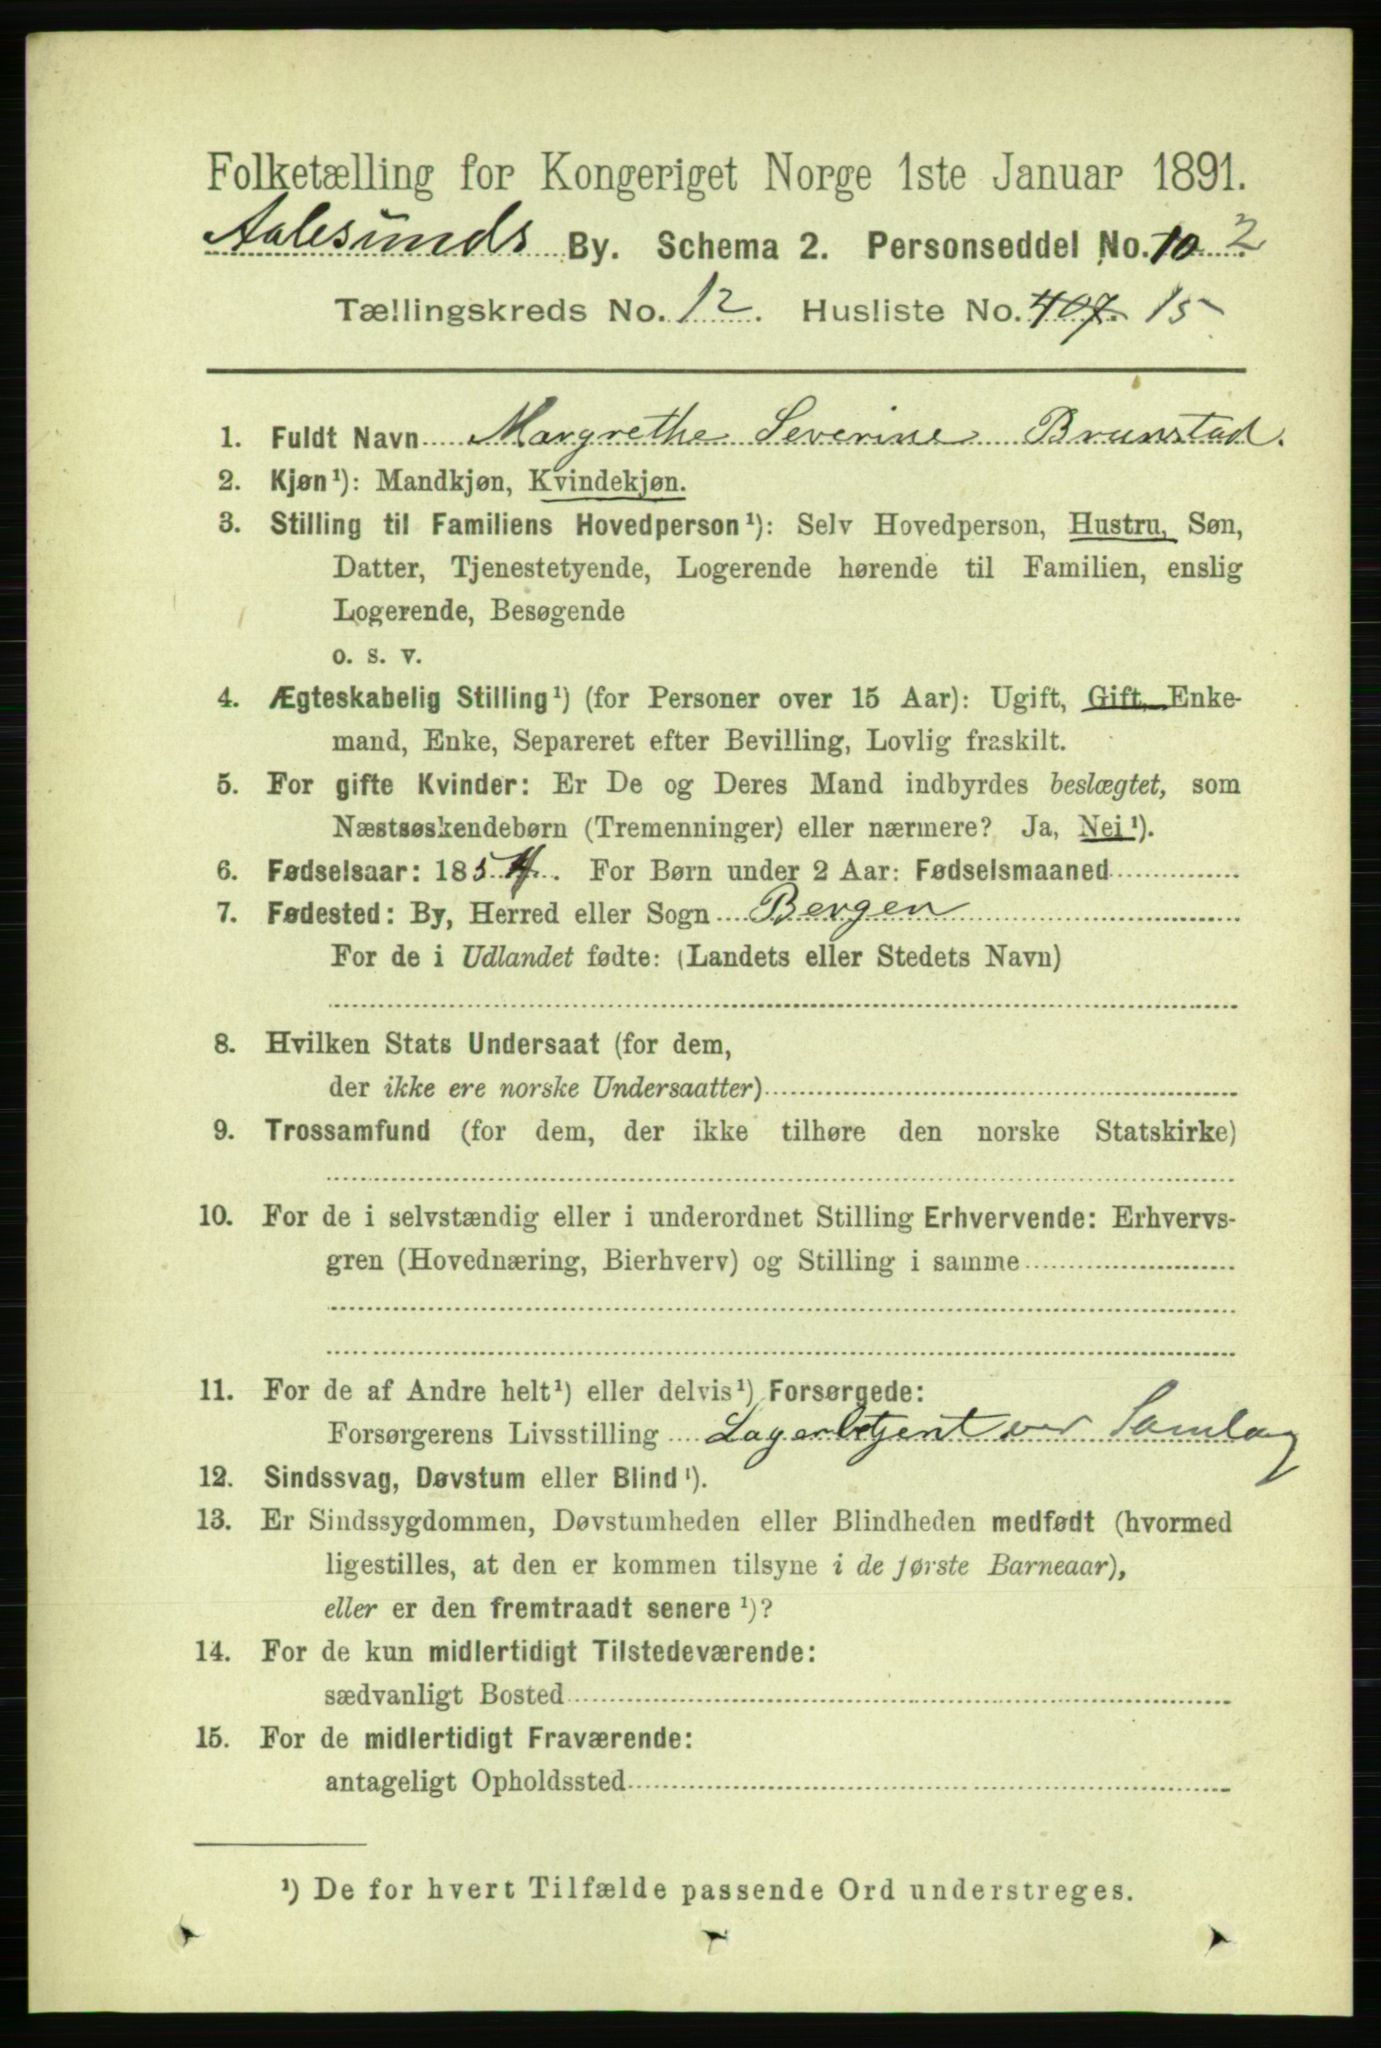 Folketælling for Kongeriget Norge 1ste Januar 1891.
Aalesunds By. Schema 2. Personseddel No. 10 2
Tællingskreds No. 12. Husliste No. 407. 15
1. Fuldt Navn Margrethe Severine Brunstad.
2. Kjøn¹): Mandkjøn, Kvindekjøn.
3. Stilling til Familiens Hovedperson¹): Selv Hovedperson, Hustru, Søn,
Datter, Tjenestetyende, Logerende hørende til Familien, enslig
Logerende, Besøgende
o. s. v.
4. Ægteskabelig Stilling¹) (for Personer over 15 Aar): Ugift, Gift, Enke-
mand, Enke, Separeret efter Bevilling, Lovlig fraskilt.
5. For gifte Kvinder: Er De og Deres Mand indbyrdes beslægtet, som
Næstsøskendebørn (Tremenninger) eller nærmere? Ja, Nei¹).
6. Fødselsaar: 1854. For Børn under 2 Aar: Fødselsmaaned
7. Fødested: By, Herred eller Sogn Bergen
For de i Udlandet fødte: (Landets eller Stedets Navn)
8. Hvilken Stats Undersaat (for dem,
der ikke ere norske Undersaatter)
9. Trossamfund (for dem, der ikke tilhøre den norske Statskirke)
10. For de i selvstændig eller i underordnet Stilling Erhvervende: Erhvervs-
gren (Hovednæring, Bierhverv) og Stilling i samme
11. For de af Andre helt¹) eller delvis¹) Forsørgede:
Forsørgerens Livsstilling Lagerbetjent ved Samlag
12. Sindssvag, Døvstum eller Blind¹).
13. Er Sindssygdommen, Døvstumheden eller Blindheden medfødt (hvormed
ligestilles, at den er kommen tilsyne i de første Barneaar),
eller er den fremtraadt senere¹)?
14. For de kun midlertidigt Tilstedeværende:
sædvanligt Bosted
15. For de midlertidigt Fraværende:
antageligt Opholdssted
¹) De for hvert Tilfælde passende Ord understreges.